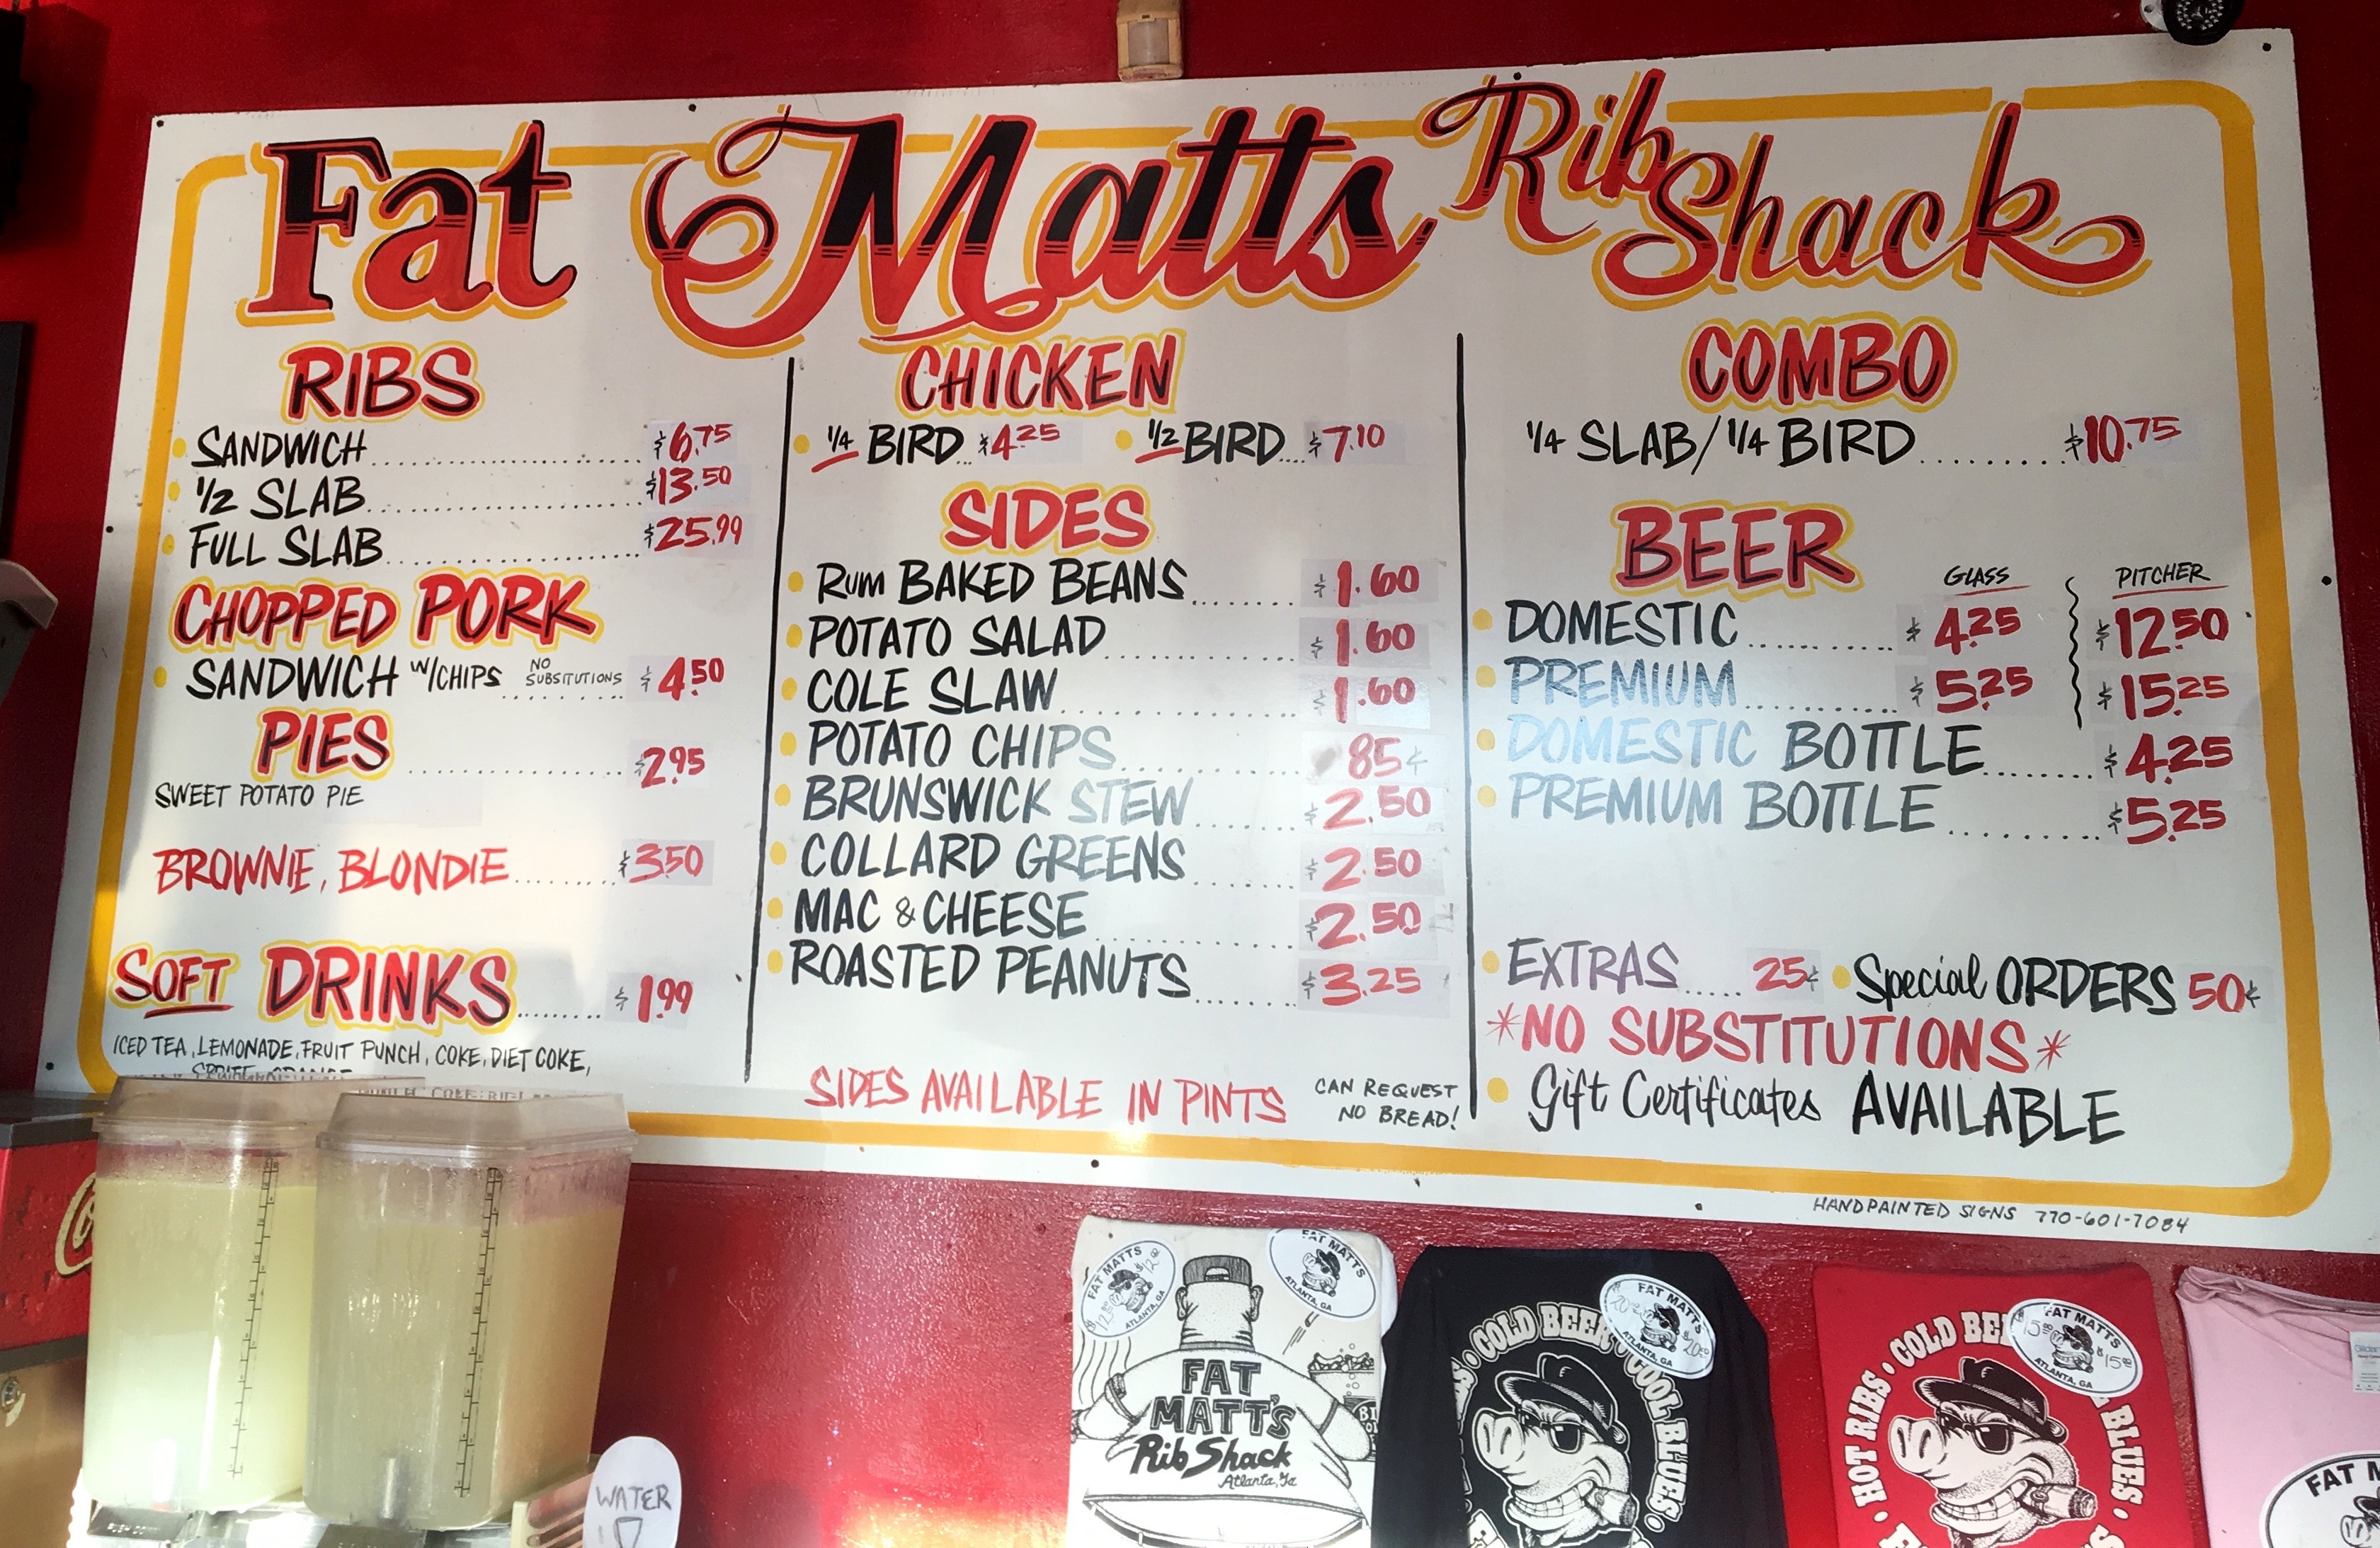 Fat Matts Rib Shack
RIBS
SANDWICH $6.75
1/2 SLAB $13.50
FULL SLAB $25.99
CHOPPED PORK
SANDWICH W/CHIPS NO SUBSITUTIONS $4.50
PIES $2.95
SWEET POTATO PIE
BROWNIE, BLONDIE $3.50
SOFT DRINKS $1.99
ICED TEA, LEMONADE, FRUIT PUNCH, COKE, DIET COKE,
SPRITE, ORANGE
CHICKEN
1/4 BIRD $4.25 1/2 BIRD $7.10
SIDES
Rum BAKED BEANS $1.60
POTATO SALAD $1.60
COLE SLAW $1.60
POTATO CHIPS 85¢
BRUNSWICK STEW $2.50
COLLARD GREENS $2.50
MAC & CHEESE $2.50
ROASTED PEANUTS $3.25
SIDES AVAILABLE IN PINTS
CAN REQUEST
NO BREAD!
COMBO
1/4 SLAB/1/4 BIRD $10.75
BEER
GLASS PITCHER
DOMESTIC $4.25 $12.50
PREMIUM $5.25 $15.25
DOMESTIC BOTTLE $4.25
PREMIUM BOTTLE $5.25
EXTRAS 25¢ Special ORDERS 50¢
*NO SUBSTITUTIONS*
Gift Certificates AVAILABLE
HANDPAINTED SIGNS 770-601-7084
WATER
FAT MATTS
$12.00
ATLANTA, GA
FAT MATTS
ATLANTA, GA
FAT
MATT'S
Rib Shack
Atlanta, Ga
COLD BEER · COOL BLUES ·
FAT MATTS
$20.00
ATLANTA, GA
· HOT RIBS · COLD BEE
BLUES ·
FAT MATTS
$15.00
ATLANTA, GA
FAT M